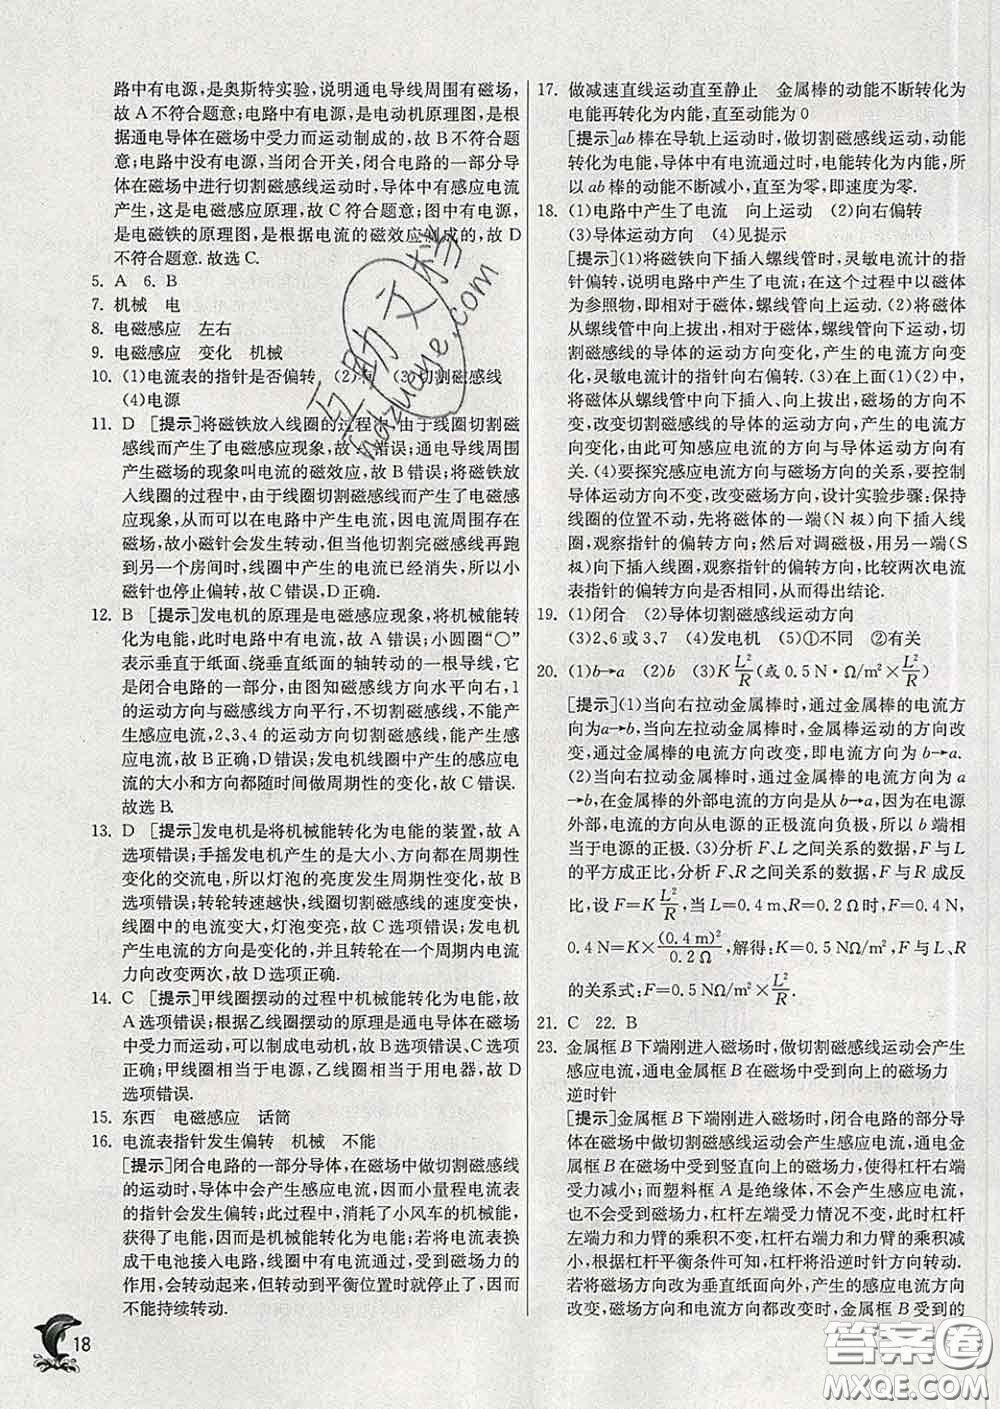 路中有电源,是奥斯特实验,说明通电导线周围有磁场,
故 A 不符合题意;电路中有电源,是电动机原理图,是根
据通电导体在磁场中受力而运动制成的,故 B 不符合题
意;电路中没有电源,当闭合开关,闭合电路的一部分导
体在磁场中进行切割磁感线运动时,导体中有感应电流
产生,这是电磁感应原理,故 C 符合题意;图中有电源,
是电磁铁的原理图,是根据电流的磁效应制成的,故 D
不符合题意.故选 C.
5. A 6. B
7. 机械 电
8. 电磁感应 左右
9. 电磁感应 变化 机械
10. (1)电流表的指针是否偏转 (2) (3)切割磁感线
(4)电源
11. D [提示]将磁铁放入线圈的过程中,由于线圈切割磁
感线而产生了电磁感应现象,故 A 错误;通电导线周围
产生磁场的现象叫电流的磁效应,故 B 错误;将磁铁放
入线圈的过程中,由于线圈切割磁感线而产生了电磁感
应现象,从而可以在电路中产生电流,因电流周围存在
磁场,故小磁针会发生转动,但当他切割完磁感线再跑
到另一个房间时,线圈中产生的电流已经消失,所以小
磁针也停止偏转,故 C 错误,D 正确.
12. B [提示]发电机的原理是电磁感应现象,将机械能转
化为电能,此时电路中有电流,故 A 错误;小圆圈“○”
表示垂直于纸面、绕垂直纸面的轴转动的一根导线,它
是闭合电路的一部分,由图知磁感线方向水平向右,1
的运动方向与磁感线方向平行,不切割磁感线,不能产
生感应电流,2、3、4 的运动方向切割磁感线,能产生感
应电流,故 B 正确,D 错误;发电机线圈中产生的感应电
流的大小和方向都随时间做周期性的变化,故 C 错误.
故选 B.
13. D [提示]发电机是将机械能转化为电能的装置,故 A
选项错误;手摇发电机产生的是大小、方向都在周期性
变化的交流电,所以灯泡的亮度发生周期性变化,故 B
选项错误;转轮转速越快,线圈切割磁感线的速度变快,
线圈中的电流变大,灯泡变亮,故 C 选项错误;发电机
产生电流的方向是变化的,并且转轮在一个周期内电流
方向改变两次,故 D 选项正确.
14. C [提示]甲线圈摆动的过程中机械能转化为电能,故
A 选项错误;根据乙线圈摆动的原理是通电导体在磁场
中受力而运动,可以制成电动机,故 B 选项错误、C 选项
正确;甲线圈相当于电源,乙线圈相当于用电器,故 D
选项错误.
15. 东西 电磁感应 话筒
16. 电流表指针发生偏转 机械 不能
[提示]闭合电路的一部分导体,在磁场中做切割磁感线
的运动时,导体中会产生感应电流,因而小量程电流表
的指针会发生偏转;此过程中,消耗了小风车的机械能,
获得了电能,因而是机械能转化为电能;若将电流表换
成干电池接入电路,线圈中有电流通过,受到磁场力的
作用,会转动起来,但转动到平衡位置时就停止了,因而
不能持续转动.
18
17. 做减速直线运动直至静止 金属棒的动能不断转化为
电能再转化为内能,直至动能为 0
[提示]ab 棒在导轨上运动时,做切割磁感线运动,动能
转化为电能,导体中有电流通过时,电能转化为内能,所
以 ab 棒的动能不断减小,直至为零,即速度为零.
18. (1)电路中产生了电流 向上运动 (2)向右偏转
(3)导体运动方向 (4)见提示
[提示](1)将磁铁向下插入螺线管时,灵敏电流计的指
针偏转,说明电路中产生了电流;运动是相对的,以磁体
为参照物,即相对于磁体,螺线管向上运动.(2)将磁体
从螺线管中向上拔出,相对于磁体,螺线管向下运动,切
割磁感线的导体的运动方向变化,产生的电流方向变
化,灵敏电流计的指针向右偏转.(3)在上面(1)(2)中,
磁体相对于螺线管向下插入、向上拔出,磁场方向没有
改变,改变切割磁感线的导体运动方向,产生的电流方
向变化,由此可知感应电流的方向与导体运动方向有
关.(4)要探究感应电流方向与磁场方向的关系,要控制
导体运动方向不变,改变磁场方向,设计实验步骤:保持
线圈的位置不动,先将磁体的一端(N 极)向下插入线
圈,观察指针的偏转方向;然后对调磁极,用另一端(S
极)向下插入线圈,观察指针的偏转方向,比较两次电流
表指针的偏转方向是否相同,从而得出结论.
19. (1)闭合 (2)导体切割磁感线运动方向
(3)2、6 或 3、7 (4)发电机 (5)①不同 ②有关
20. (1)b→a (2)b (3)K L²/R(或 0.5 N·Ω/m²× L²/R)
[提示](1)当向右拉动金属棒时,通过金属棒的电流方
向为a→b,当向左拉动金属棒时,金属棒运动的方向改
变,通过金属棒的电流方向改变,即电流方向为 b→a.
(2)当向右拉动金属棒时,通过金属棒的电流方向为 a
→b,在金属棒的外部电流的方向是从b→a,因为在电源
外部,电流方向从电源的正极流向负极,所以 b 端相
当于电源的正极.(3)分析 F、L 之间关系的数据,F 与 L
的平方成正比,分析 F、R 之间关系的数据,F 与 R 成反
比,设 F=K L²/R,当 L=0.4 m、R=0.2 Ω时,F=0.4 N,
0.4 N=K× (0.4 m)²/0.2 Ω,解得:K=0.5 N Ω/m²,F 与 L、R
的关系式:F=0.5 NΩ/m²× L²/R.
21. C 22. B
23. 金属框 B 下端刚进入磁场时,做切割磁感线运动会产生
感应电流,通电金属框 B 在磁场中受到向上的磁场力
逆时针
[提示]金属框 B 下端刚进入磁场时,闭合电路的部分导
体在磁场中做切割磁感线运动会产生感应电流,通电金
属框 B 在磁场中受到竖直向上的磁场力,使得杠杆右端
受力减小;而塑料框 A 是绝缘体,不会产生感应电流,
也不会受到磁场力,杠杆左端受力情况不变,此时杠杆
左端力和力臂的乘积不变,右端力和力臂的乘积变小,
根据杠杆平衡条件可知,杠杆将沿逆时针方向转动.
若将磁场方向改为垂直纸面向外,产生的感应电流方向
改变,磁场方向和电流方向都改变时,金属框 B 受到的
互助文档
huzuoye.com
答案圈
MXQE.COM